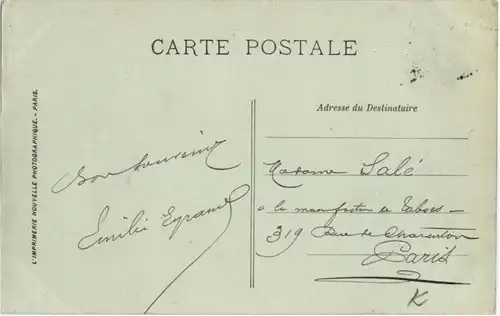 CARTE POSTALE
Adresse du Destinataire
L'IMPRIMERIE NOUVELLE PHOTOGRAPHIQUE. - PARIS.
Bon souvenir
Emilie
Madame Salé
a la manufacture de Tabacs -
319 Rue de Charenton
Paris
K